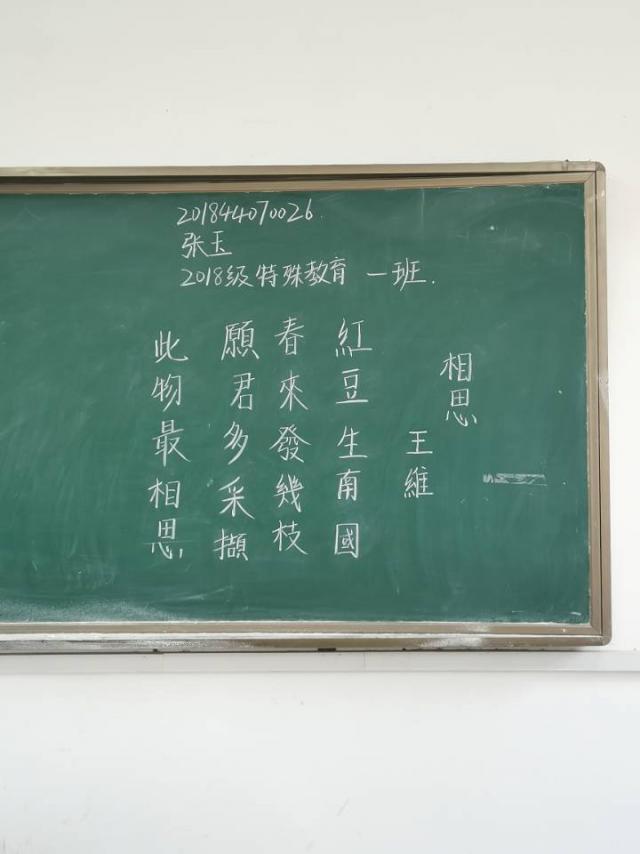 201844070026.
张玉
2018级特殊教育 一班.
相思
王維
紅豆生南國
春來發幾枝
願君多采擷
此物最相思